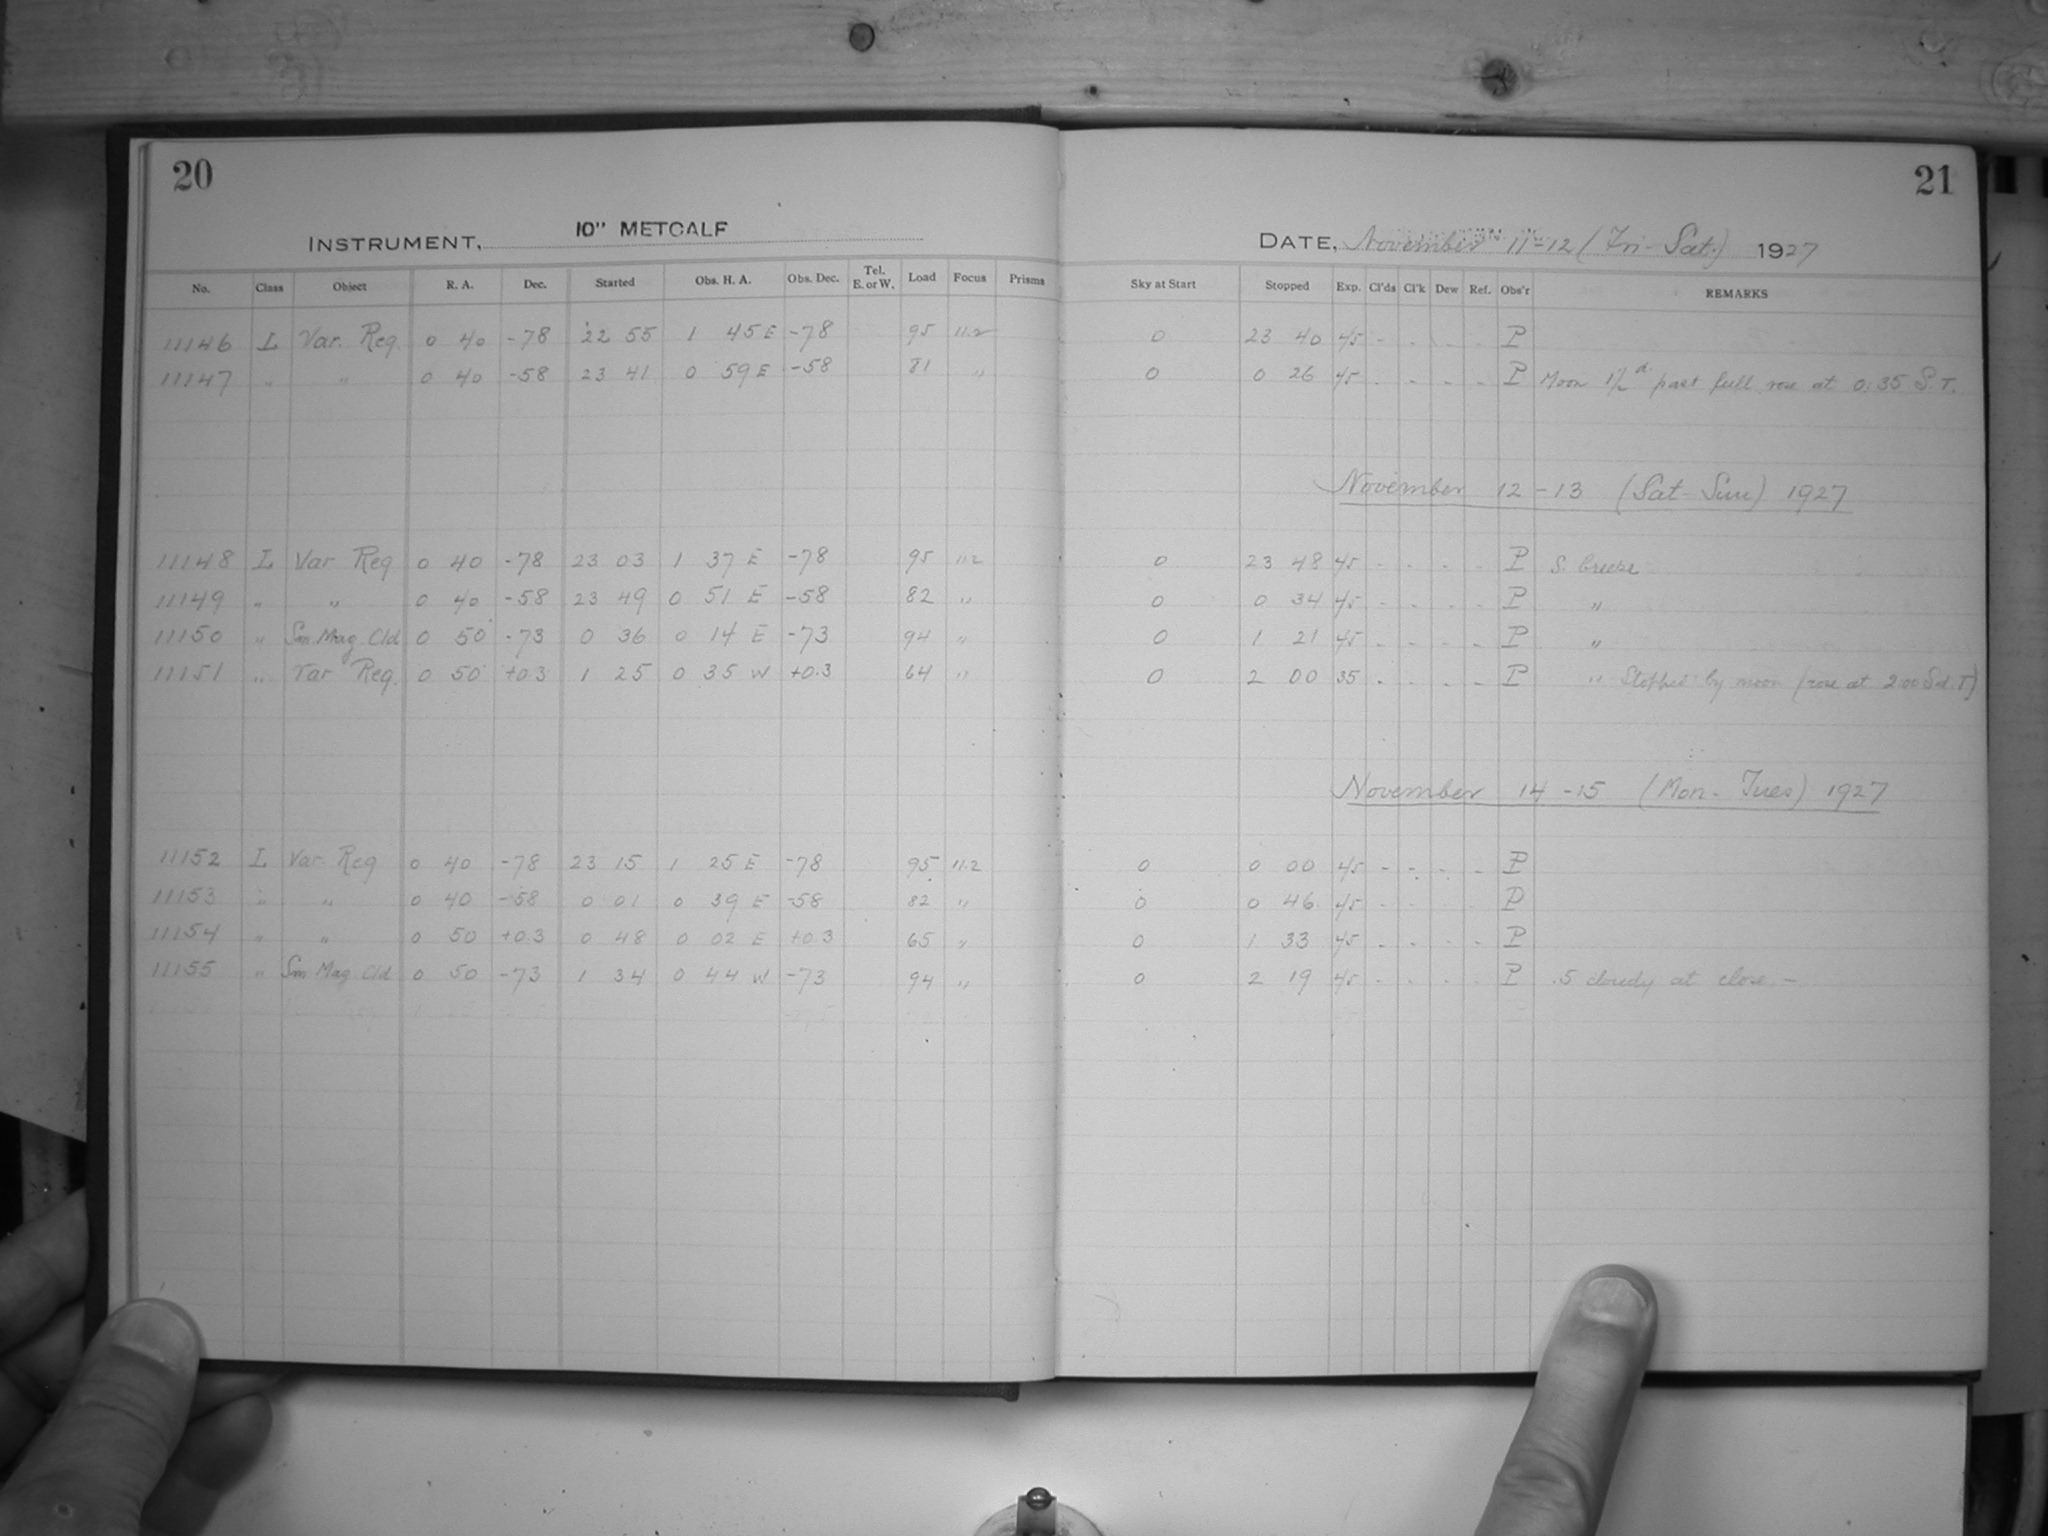 20
INSTRUMENT, 10" METCALF
No. Class Object R. A. Dec. Started Obs. H. A. Obs. Dec. Tel. E. or W. Load Focus Prisms
11146 L Var. Reg. 0 40 -78 22 55 1 45 E -78 95 11.2
11147 " " 0 40 -58 23 41 0 59 E -58 81 "
11148 L Var Reg 0 40 -78 23 03 1 37 E -78 95 11.2
11149 " " 0 40 -58 23 49 0 51 E -58 82 "
11150 " Sm. Mag. Cld 0 50 -73 0 36 0 14 E -73 94 "
11151 " Var Reg. 0 50 +0.3 1 25 0 35 W +0.3 64 "
11152 L Var. Reg 0 40 -78 23 15 1 25 E -78 95 11.2
11153 " " 0 40 -58 0 01 0 39 E -58 82 "
11154 " " 0 50 +0.3 0 48 0 02 E +0.3 65 "
11155 " Sm. Mag. Cld 0 50 -73 1 34 0 44 W -73 94 "
21
DATE, November 11-12 (Fri-Sat.) 1927
Sky at Start Stopped Exp. Cl'ds Cl'k Dew Ref. Obs'r REMARKS
0 23 40 45 - - - - P
0 0 26 45 - - - - P Moon 1½ d past full rose at 0:35 S.T.
November 12-13 (Sat-Sun) 1927
0 23 48 45 - - - - P S. breeze
0 0 34 45 - - - - P "
0 1 21 45 - - - - P "
0 2 00 35 - - - - P " Stopped by moon (rose at 2:00 Sid. T)
November 14-15 (Mon-Tues) 1927
0 0 00 45 - - - - P
0 0 46 45 - - - - P
0 1 33 45 - - - - P
0 2 19 45 - - - - P .5 cloudy at close. -